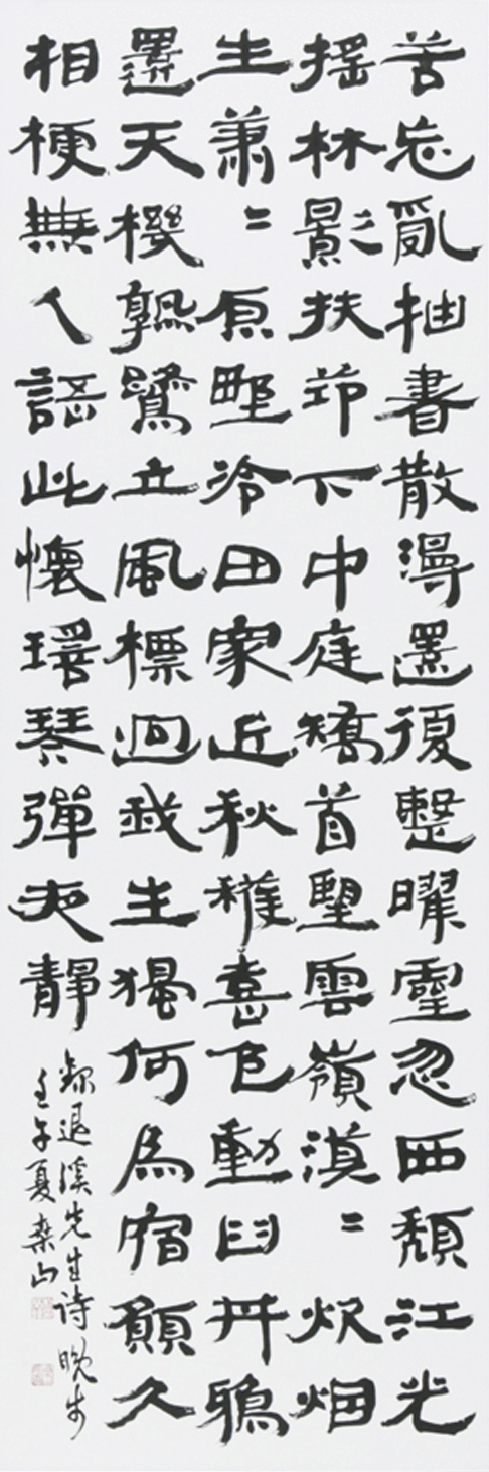 苦忘亂抽書散漫還復整曜靈忽西頹江光
搖林影扶筇下中庭矯首望雲嶺漠〻炊烟
生蕭〻原野冷田家近秋穫喜色動臼井鴉
還天機熟鷺立風標迥我生獨何爲宿願久
相梗無人語此懷瑤琴彈夜靜
錄退溪先生詩晩步
壬午夏